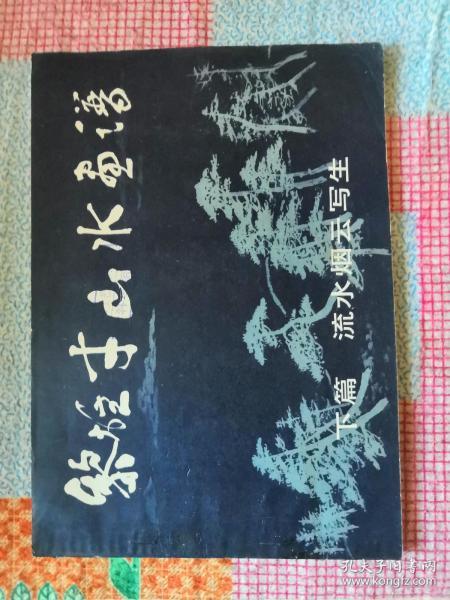 黎雄才山水画谱
下篇 流水烟云写生
孔夫子旧书网
www.kongfz.com